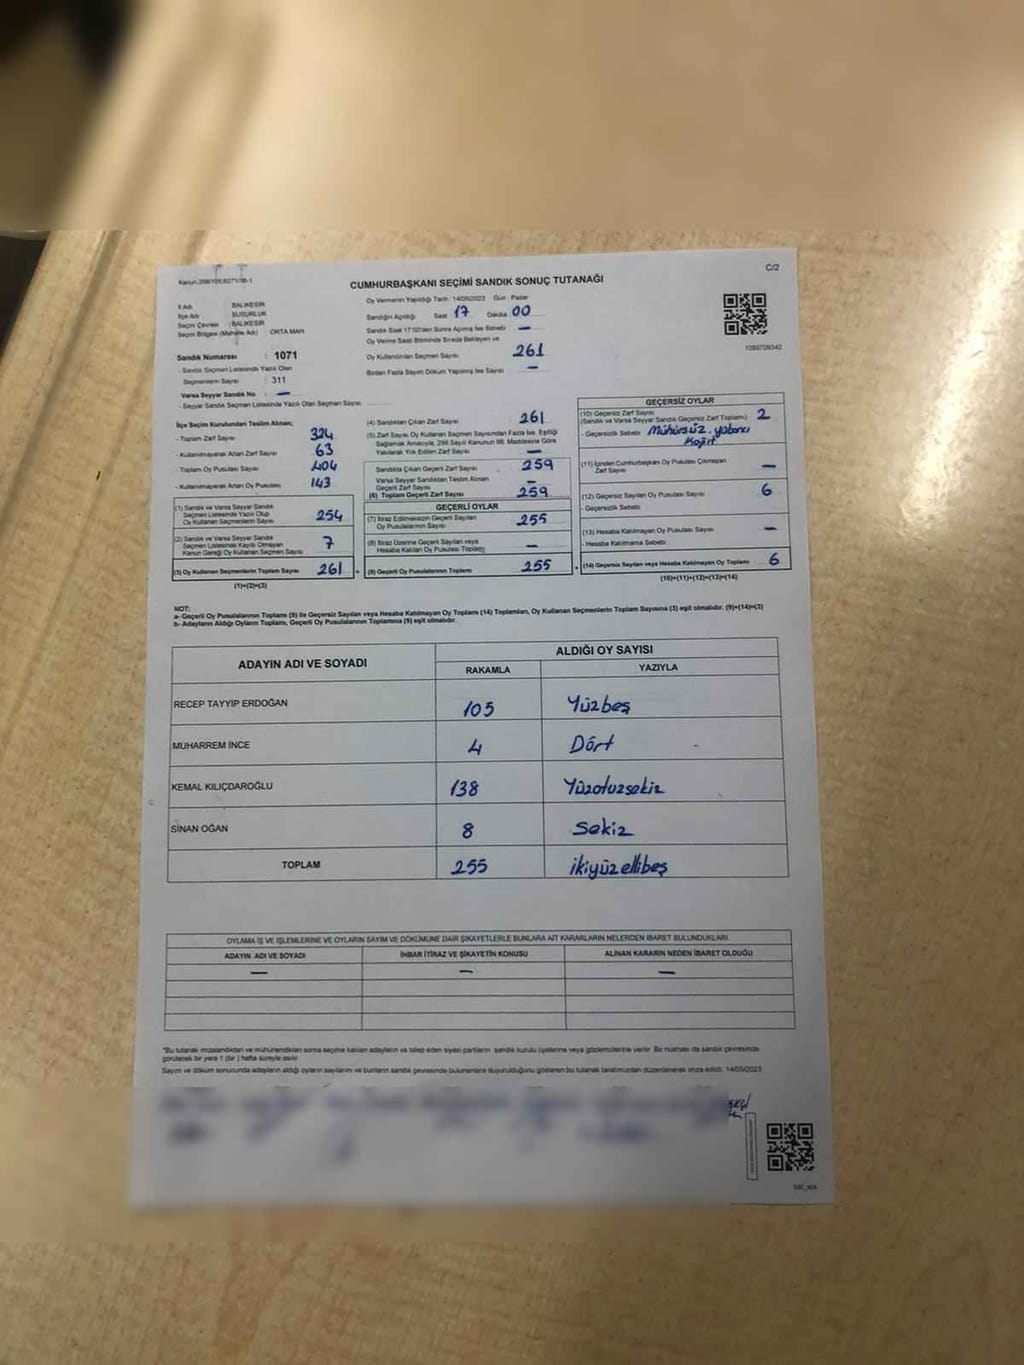 Kanun:298/105,6271/18-1
C/2
CUMHURBAŞKANI SEÇİMİ SANDIK SONUÇ TUTANAĞI
İl Adı BALIKESİR
İlçe Adı SUSURLUK
Seçim Çevresi : BALIKESİR
Seçim Bölgesi (Mahalle Adı) : ORTA MAH
Sandık Numarası : 1071
- Sandık Seçmen Listesinde Yazılı Olan
Seçmenlerin Sayısı : 311
Varsa Seyyar Sandık No : —
- Seyyar Sandık Seçmen Listesinde Yazılı Olan Seçmen Sayısı
Oy Vermenin Yapıldığı Tarih : 14/05/2023 Gün Pazar
Sandığın Açıldığı Saat 17 Dakika 00
Sandık Saat 17:00'den Sonra Açılmış İse Sebebi —
Oy Verme Saati Bitiminde Sırada Bekleyen ve
Oy Kullandırılan Seçmen Sayısı 261
Birden Fazla Sayım Döküm Yapılmış İse Sayısı —
1093709342
İlçe Seçim Kurulundan Teslim Alınan;
- Toplam Zarf Sayısı 324
- Kullanılmayarak Artan Zarf Sayısı 63
- Toplam Oy Pusulası Sayısı 404
- Kullanılmayarak Artan Oy Pusulası 143
(1) Sandık ve Varsa Seyyar Sandık
Seçmen Listesinde Yazılı Olup
Oy Kullanan Seçmenlerin Sayısı 254
(2) Sandık ve Varsa Seyyar Sandık
Seçmen Listesinde Kayıtlı Olmayan
Kanun Gereği Oy Kullanan Seçmen Sayısı 7
(3) Oy Kullanan Seçmenlerin Toplam Sayısı 261
(1)+(2)=(3)
(4) Sandıktan Çıkan Zarf Sayısı 261
(5) Zarf Sayısı Oy Kullanan Seçmen Sayısından Fazla İse, Eşitliği
Sağlamak Amacıyla, 298 Sayılı Kanunun 98. Maddesine Göre
Yakılarak Yok Edilen Zarf Sayısı —
Sandıkta Çıkan Geçerli Zarf Sayısı 259
Varsa Seyyar Sandıktan Teslim Alınan
Geçerli Zarf Sayısı —
(6) Toplam Geçerli Zarf Sayısı 259
GEÇERLİ OYLAR
(7) İtiraz Edilmeksizin Geçerli Sayılan
Oy Pusulalarının Sayısı 255
(8) İtiraz Üzerine Geçerli Sayılan veya
Hesaba Katılan Oy Pusulası Toplamı —
(9) Geçerli Oy Pusulalarının Toplamı 255
GEÇERSİZ OYLAR
(10) Geçersiz Zarf Sayısı 2
(Sandık ve Varsa Seyyar Sandık Geçersiz Zarf Toplamı)
- Geçersizlik Sebebi: Mühürsüz. yabancı
Kağıt
(11) İçinden Cumhurbaşkanı Oy Pusulası Çıkmayan
Zarf Sayısı —
(12) Geçersiz Sayılan Oy Pusulası Sayısı 6
- Geçersizlik Sebebi:
(13) Hesaba Katılmayan Oy Pusulası Sayısı —
- Hesaba Katılmama Sebebi:
(14) Geçersiz Sayılan veya Hesaba Katılmayan Oy Toplamı 6
(10)+(11)+(12)+(13)=(14)
NOT:
a- Geçerli Oy Pusulalarının Toplamı (9) ile Geçersiz Sayılan veya Hesaba Katılmayan Oy Toplamı (14) Toplamları, Oy Kullanan Seçmenlerin Toplam Sayısına (3) eşit olmalıdır. (9)+(14)=(3)
b- Adayların Aldığı Oyların Toplamı, Geçerli Oy Pusulalarının Toplamına (9) eşit olmalıdır.
ADAYIN ADI VE SOYADI
ALDIĞI OY SAYISI
RAKAMLA YAZIYLA
RECEP TAYYİP ERDOĞAN 105 Yüzbeş
MUHARREM İNCE 4 Dört
KEMAL KILIÇDAROĞLU 138 Yüzotuzsekiz
SİNAN OĞAN 8 Sekiz
TOPLAM 255 ikiyüzellibeş
OYLAMA İŞ VE İŞLEMLERİNE VE OYLARIN SAYIM VE DÖKÜMÜNE DAİR ŞİKAYETLERLE BUNLARA AİT KARARLARIN NELERDEN İBARET BULUNDUKLARI
ADAYIN ADI VE SOYADI İHBAR İTİRAZ VE ŞİKAYETİN KONUSU ALINAN KARARIN NEDEN İBARET OLDUĞU
— — —
*Bu tutanak imzalandıktan ve mühürlendikten sonra seçime katılan adayların ve talep eden siyasi partilerin sandık kurulu üyelerine veya gözlemcilerine verilir. Bir nüshası da sandık çevresinde
görülecek bir yere 1 (bir) hafta süreyle asılır.
Sayım ve döküm sonucunda adayların aldığı oyların sayılarını ve bunların sandık çevresinde bulunanlara duyurulduğunu gösteren bu tutanak tarafımızdan düzenlenerek imza edildi. 14/05/2023